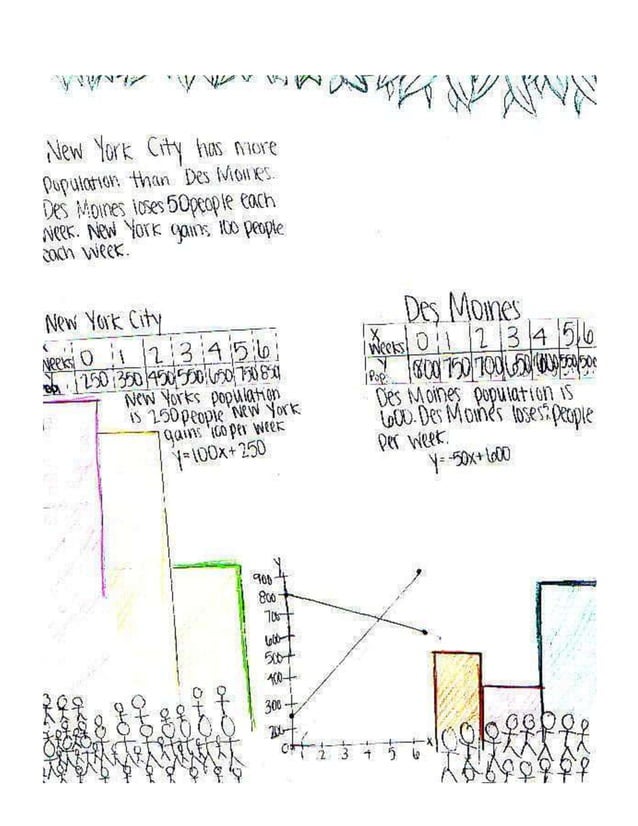 New York City has more
population than Des Moines.
Des Moines loses 50 people each
week. New York gains, 100 people
each week.
New York City
Weeks 0 1 2 3 4 5 6
250 350 450 550 650 750 850
New Yorks population
is 250 people New York
gains 100 per week
y=100x+250
Des Moines
X Weeks 0 1 2 3 4 5 6
Y Pop. 800 750 700 650 600 550 500
Des Moines population is
600. Des Moines loses people
per week.
y=-50x+600
Y
900
800
700
600
500
400
300
200
0 1 2 3 4 5 6 X